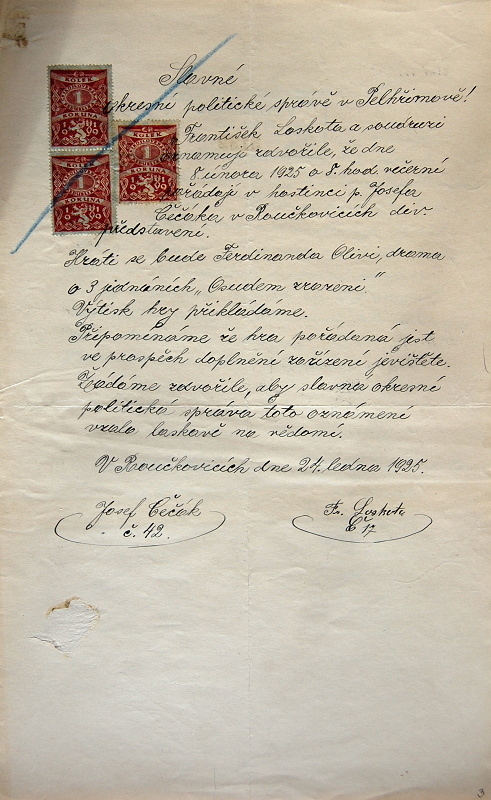 Slavné
okresní politické správě v Pelhřimově!
František Loskota a soudruzi
oznamují zdvořile, že dne
8. února 1925 o 8. hod večerní
pořádají v hostinci p. Josefa
Čečáka v Roučkovicích div.
představení.
Hráti se bude Ferdinanda Olivi, drama
o 3 jednáních „Osudem zrazeni"
Výtisk hry přikládáme.
Připomínáme že hra pořádaná jest
ve prospěch doplnění zařízení jeviště.
Žádáme zdvořile, aby slavna okresní
politická správa toto oznámení
vzala laskavě na vědomí.
V Roučkovicích dne 24. ledna 1925.
Josef Čečák
č. 42.
Fr. Loskota
Č 17
KOLEK
1
KORUNA
KOLEK
1
KORUNA
1
KORUNA
3